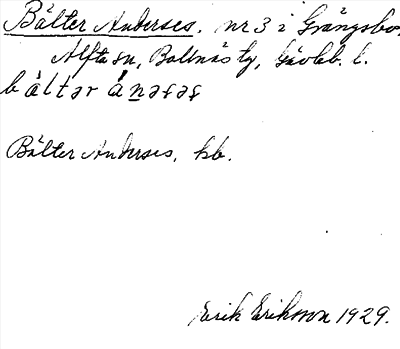 Bälter Anderses, nr 3 i Grängsbo,
Alfta sn, Bollnäs tg, Gävleb. l.
bä̀ltər ánəsəs
Bälter Anderses, kb.
Erik Eriksson 1929.